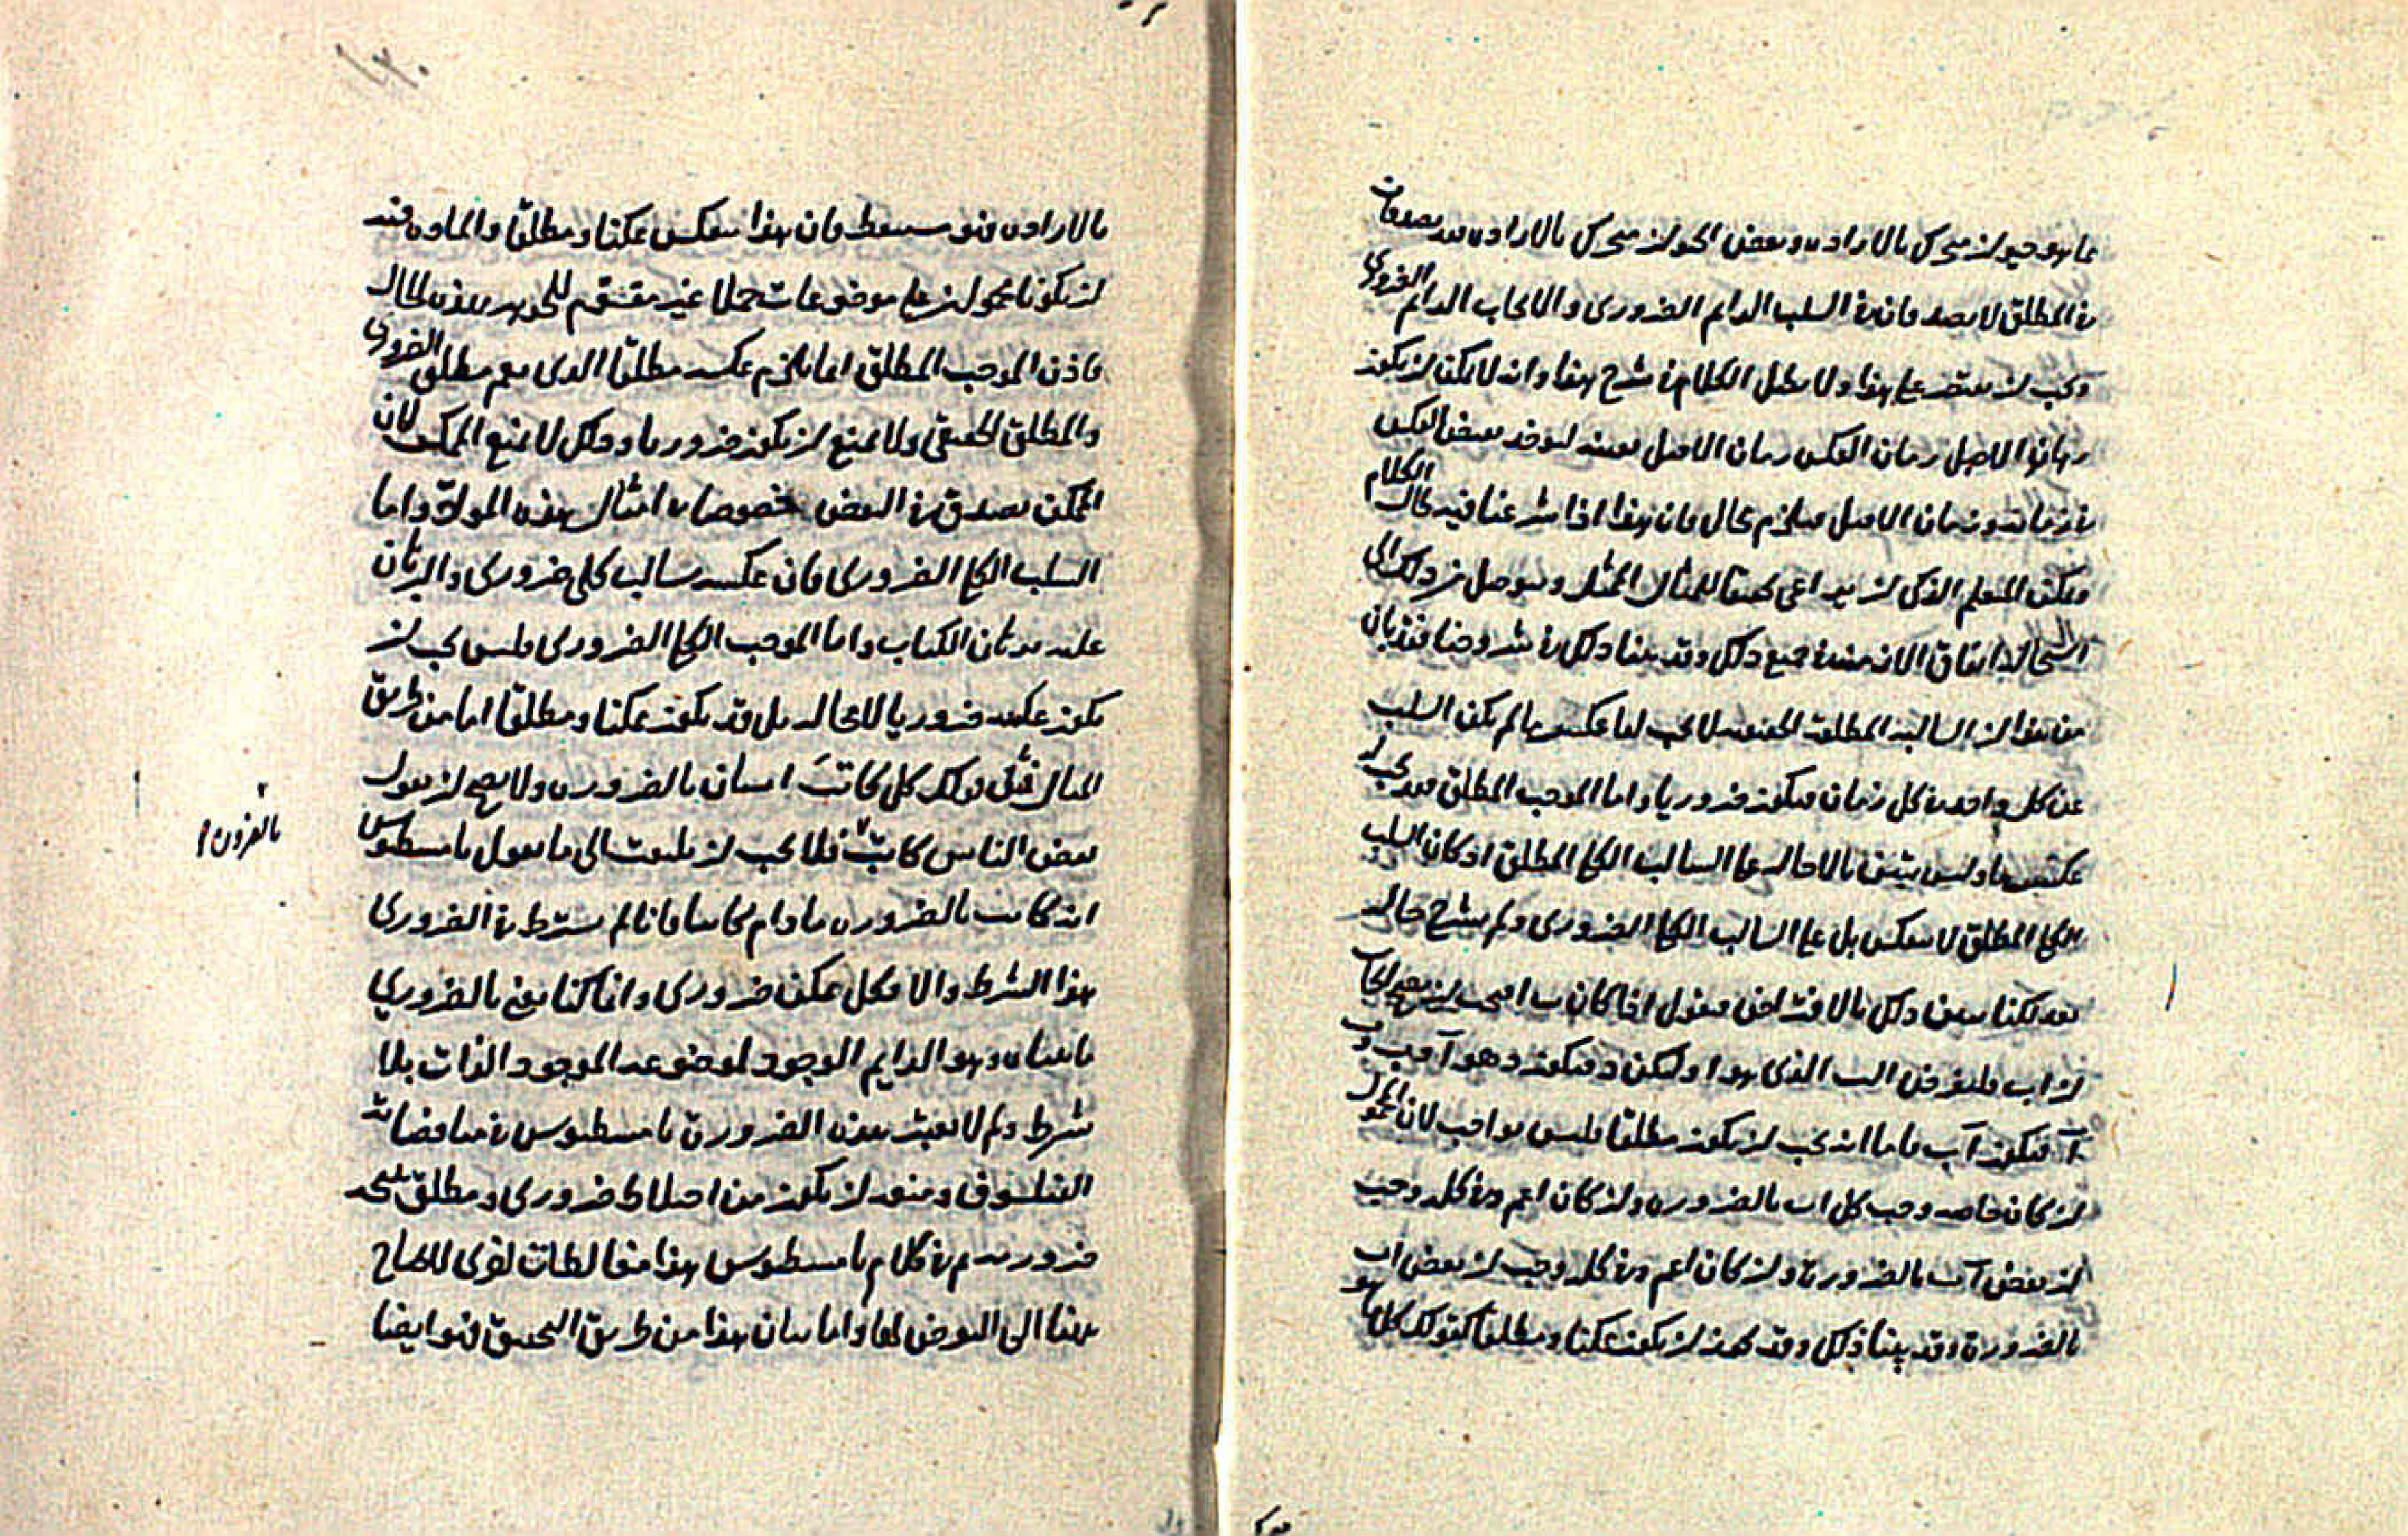 مما هو حيوان متحرك بالارادة وبعض الحيوان متحرك بالارادة قد يصدقان
في المطلق لا بعد فان في السلب الدايم الضروري والايجاب الدايم الضروري
ويجب ان على هذا ولا يطل الكلام في شرح هذا وانه لا يمكن ان يكون
زمان الاصل زمان العكس زمان الاصل بعينه بعض العكس
في زمان دون زمان الاصل فيلزم محال فان هذا اذا شرعنا فيه طال الكلام
ويمكن المتعلم الذكي ان يراعي للمثال الممثل ويتوصل من ذلك الى
جميع ذلك وقد بينا ذلك في شروحنا فقد بان
من هذا ان السالبة المطلقة الحقيقية لا يجب لها عكس ما لم يكن السلب
عن كل واحد في كل زمان فيكون ضروريا واما الموجب المطلق فقد يجب ان
عكس ما وليس يتبين بالاحالة على السالب الكلي المطلق اذ كان السلب
الكلي المطلق لا ينعكس بل على السالب الكلي الضروري ولم يشرح حاله
بعد لكنا نبين ذلك بالافتراض فنقول اذا كان ب ا
ان ا ب فليفرض الب الذي هو ا وليكن د فيكون د هو آ وب و
آ فيكون آ ب فاما انه يجب ان يكون مطلقا فليس بواجب لان المحمول
ان كان خاصه وجب كل ا ب بالضرورة وان كان اعم وجب
ان بعض آ ب بالضرورة وان كان اعم وجب ان بعض ا ب
بالضرورة وقد بينا ذلك وقد يجوز ان يكون ممكنا ومطلقا كقولك كل ما هو
بالارادة فهو مستيقظ فان هذا ينعكس ممكنا ومطلقا والمادة فيه
ان يكون المحمول على موضوعات حملا غير مقوم للجوهر بهذه الحال
فاذن الموجب المطلق انما يلزم عكسه مطلقا الذي يعم مطلق الضروري
والمطلق الحقيقي ولا يمنع ان يكون ضروريا وذلك لا يمنع الممكن لان
الممكن يصدق في البعض خصوصا في امثال هذه المواد واما
السلب الكلي الضروري فان عكسه سالب كلي ضروري والبرهان
عليه برهان الكتاب واما الموجب الكلي الضروري فليس يجب ان
يكون عكسه ضروريا لا محالة بل قد يكون ممكنا ومطلقا اما من طريق
المثال فمثل قولك كل كاتب انسان بالضرورة ولا يصح ان نقول
بعض الناس كاتب فلا يجب ان يلتفت الى ما يقول ثامسطيوس
بالضرورة
انه كاتب بالضرورة ما دام كاتبا فانا لم نشترط في الضروري
هذا الشرط والا فكل ممكن ضروري وانا كنا نعني بالضروري
ما بيناه وهو الدايم الوجود لموضوعه الموجود الذات بلا
شرط ولم لا يعتبر هذه الضرورة ثامسطيوس في مناقضاته
الفيلسوف ومنعه ان يكون من اختلاط ضروري ومطلق نتيجه
ضرورية ثم في كلام ثامسطيوس هذا مغالطات اخرى لا نحتاج
هاهنا الى التعرض لها واما بيان هذا من طريق التحقيق فهو ايضا